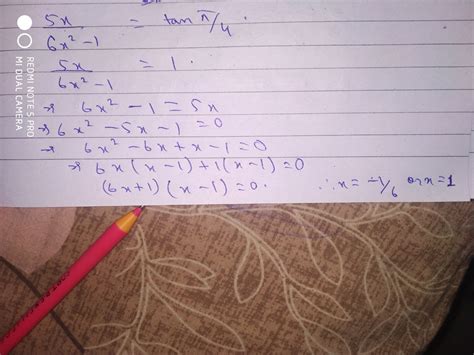 5x/6x² - 1 = tan π/4 .
5x/6x² - 1 = 1 .
⇒ 6x² - 1 = 5x
⇒ 6x² - 5x - 1 = 0
⇒ 6x² - 6x + x - 1 = 0
⇒ 6x (x - 1) + 1 (x - 1) = 0
(6x + 1) (x - 1) = 0 . ∴ x = -1/6 or x = 1
REDMI NOTE 5 PRO
MI DUAL CAMERA